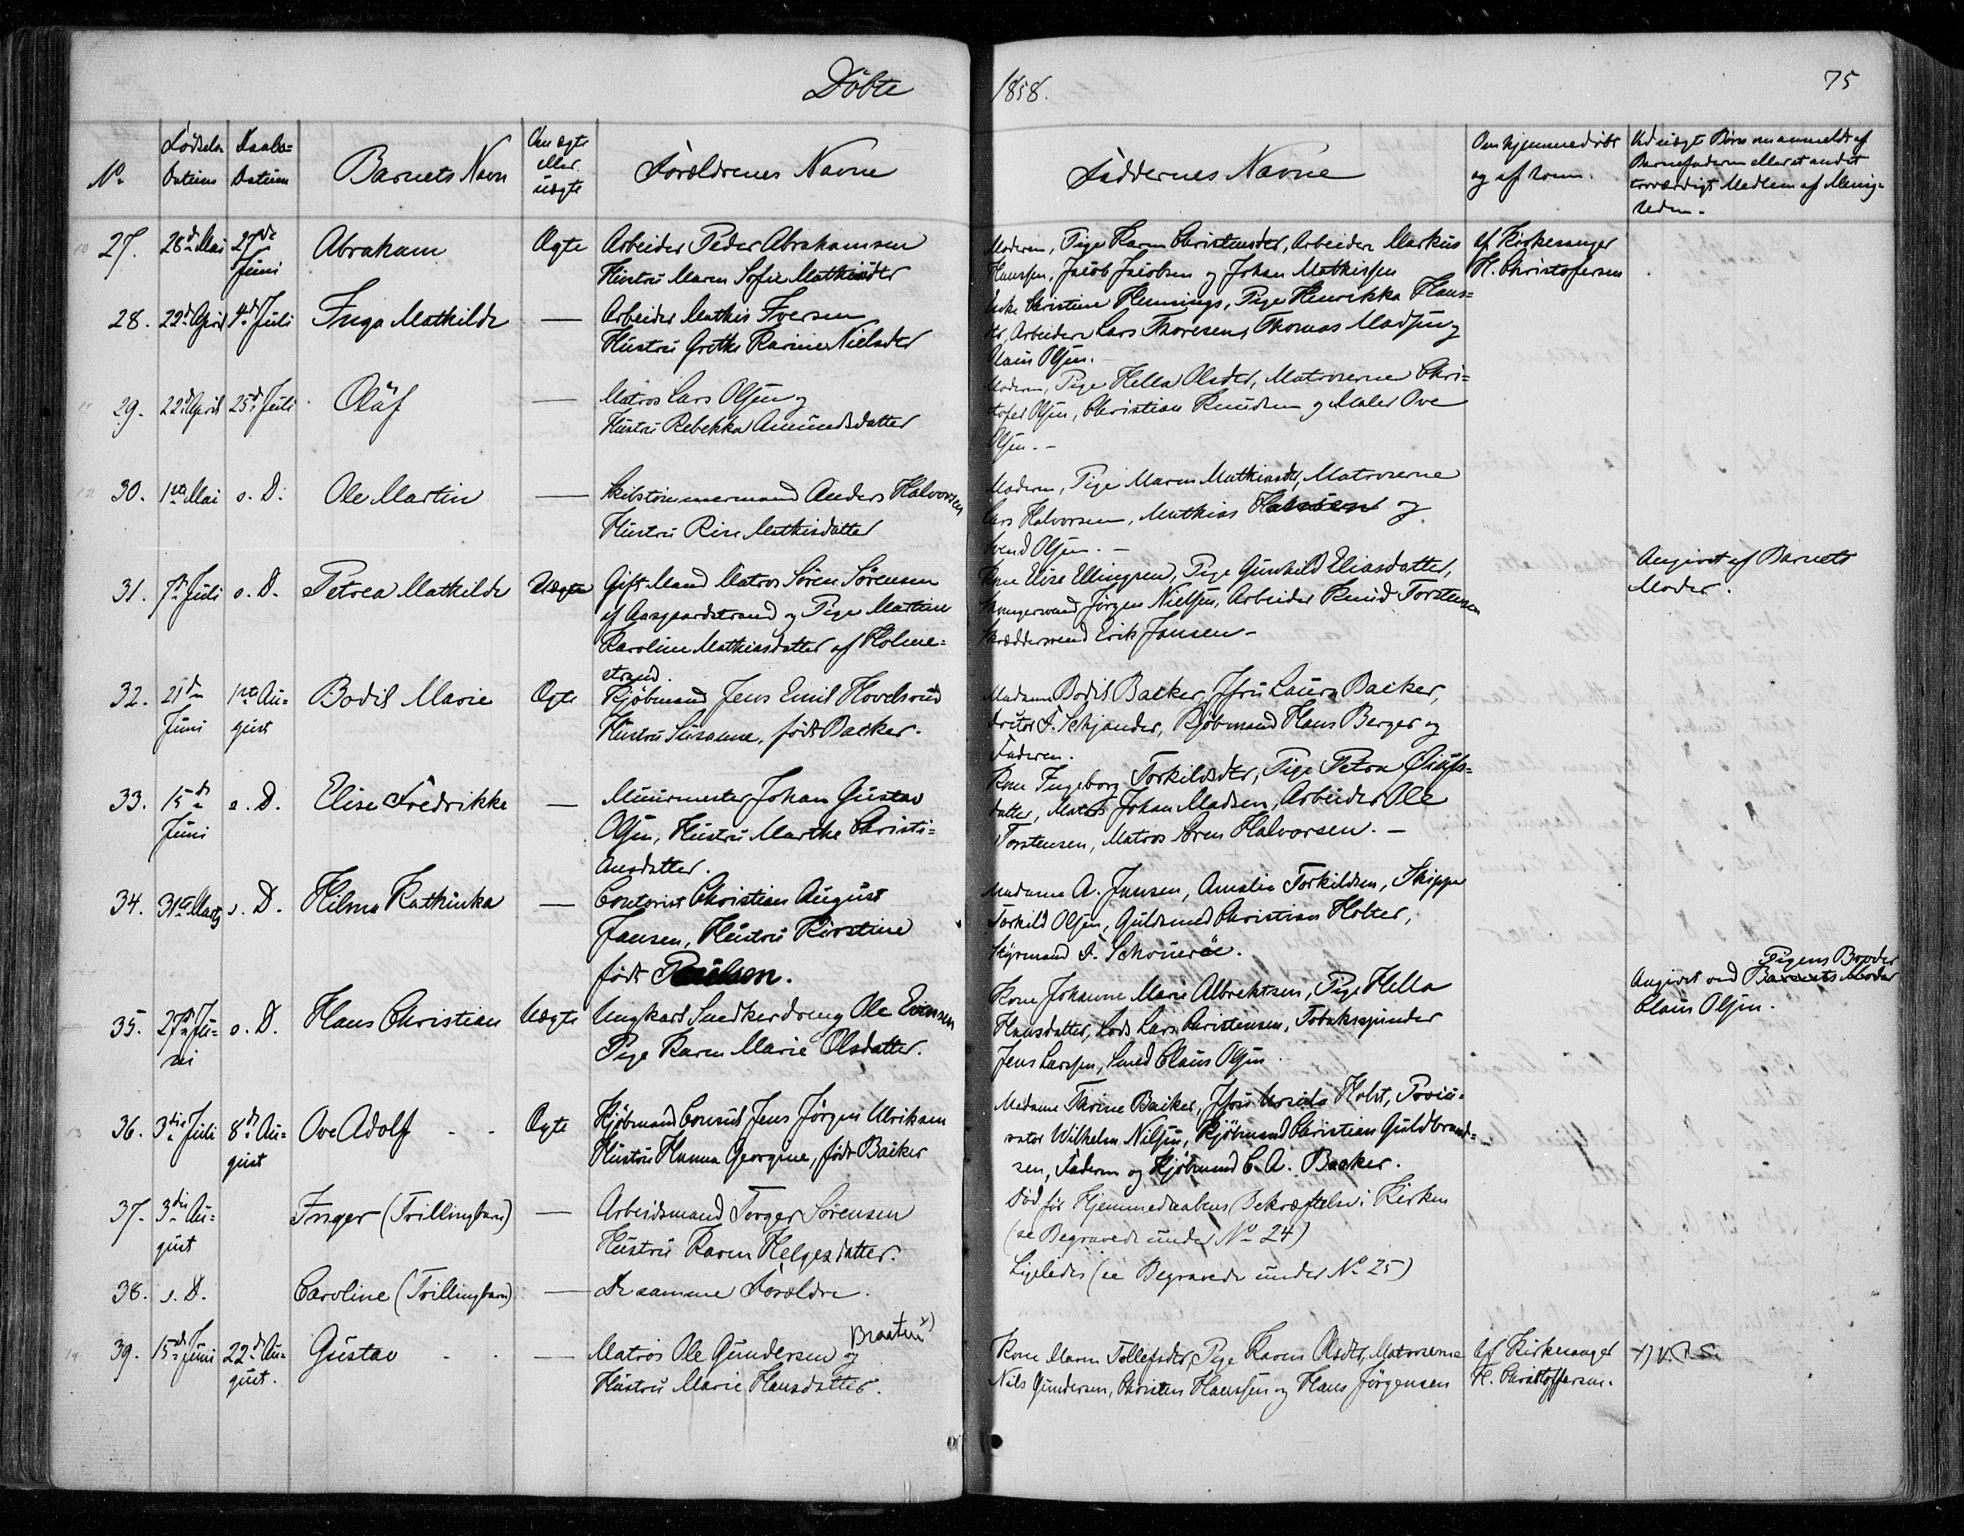 Døbte 1858. 75
No. Fødsels Datum Daabs-Datum Barnets Navn Om ægte eller uægte Forældrenes Navne Faddernes Navne Om hjemmedøbt og af hvem. Ved uægte Børn om anmeldt af Barnefaderen eller et andet troværdigt Medlem af Menigheden.
27. 28de Mai 27de Juni Abraham Ægte Arbeider Peder Abrahamsen
Hustru Maren Sofie Mathisdtr
Moderen, Pige Karen Christensdtr, Arbeider Markus
Hanssen, Jacob Jacobsen og Johan Mathissen
af Kirkesanger
H. Christofersen
28. 22de April 4de Juli Inga Mathilde — Arbeider Mathis Iversen
Hustru Grethe Karine Nielsdtr
Enke Christine Hennings, Pige Henrikka Hans-
dtr, Arbeidere Lars Thoresen, Thomas Madsen og
Claus Olsen.
29. 22de April 25de Juli Oluf — Matros Lars Olsen og
Hustru Rebekka Amundsdatter
Moderen, Pige Hella Olsdtr, Matroserne Chri-
stofer Olsen, Christian Knudsen og Maler Ove
Olsen. –
30. 1ste Mai s. D. Ole Martin — Skibstømmermand Anders Halvorsen
Hustru Rise Mathisdatter
Moderen, Pige Maren Mathiasdtr, Matroserne
Lars Halvorsen, Mathias Hansen og
Svend Olsen. –
31. 7de Juli s. D. Petrea Mathilde Uægte Gift Mand Matros Søren Sørensen
af Aasgaardstrand og Pige Martine
Karoline Mathiasdatter af Holme-
strand.
Kone Elise Ellingsen, Pige Gunhild Eliasdatter,
Jørgen Nielsen, Arbeider Knud Torstensen
Skræddersvend Erik Jansen –
Angivet af Barnets
Moder.
32. 21de Juni 1ste August Bodil Marie Ægte Kjøbmand Jens Emil Hovelsrud
Hustru Susanne, født Backer.
Madame Bodil Backer, Jfru Laura Backer,
Doctor F. Schjander, Kjøbmand Hans Berger og
Faderen.
33. 15de Juni s. D. Elise Fredrikke — Muurmester Johan Gustav
Olsen, Hustru Marthe Christi-
ansdatter.
Kone Ingeborg Torkildsdtr, Pige Petra
datter, Matros Johan Madsen, Arbeider Ole
Torstensen, Matros Søren Halvorsen. –
34. 31te Marts s. D. Hilma Kathinka — Contorist Christian August
Jansen, Hustru Kirstine
født Paulsen.
Madame A. Jansen, Amalie Torkildsen, Skipper
Torkild Olsen, Guldsmed Christian Holter,
Styrmand F. Schouerøe.
35. 27de Juni s. D. Hans Christian Uægte Ungkarl Snedkerdreng Ole Evensen
Pige Karen Marie Olsdatter.
Kone Johanne Marie Albrektsen, Pige Hella
Hansdatter, Lods Lars Christensen, Tobakspinder
Jens Larssen, Smed Claus Olsen
Angivet ved Barnets Moder Pigens Broder
Claus Olsen.
36. 3die Juli 8de August Ove Adolf - - Ægte Kjøbmand Consul Jens Jørgen Ulriksen
Hustru Hanna Georgine, født Backer
Madame Thrine Backer, Jfru Holst, Provi-
sator Wilhelm Nilsen, Kjøbmand Christian Guldbrand-
sen, Faderen og Kjøbmand C. A. Backer.
37. 3die August Inger (Trillingbarn) — Arbeidsmand Torger Sørensen
Hustru Karen Helgesdatter.
Død før Hjemmedaabens Bekræftelse i Kirken
(se Begravede under No 24)
38. s. D. Caroline (Trillingbarn) — De samme Forældre.
Ligeledes (se Begravede under No 25)
39. 15de Juni 22de August. Gustav - - — Matros Ole Gundersen Braaten x) og
Hustru Marie Hansdatter.
Kone Maren Tollefsdtr, Pige Karen Olsdtr, Matroserne
Nils Gundersen, Christen Hanssen og Hans Jørgensen
Af Kirkesanger
H. Christoffersen.